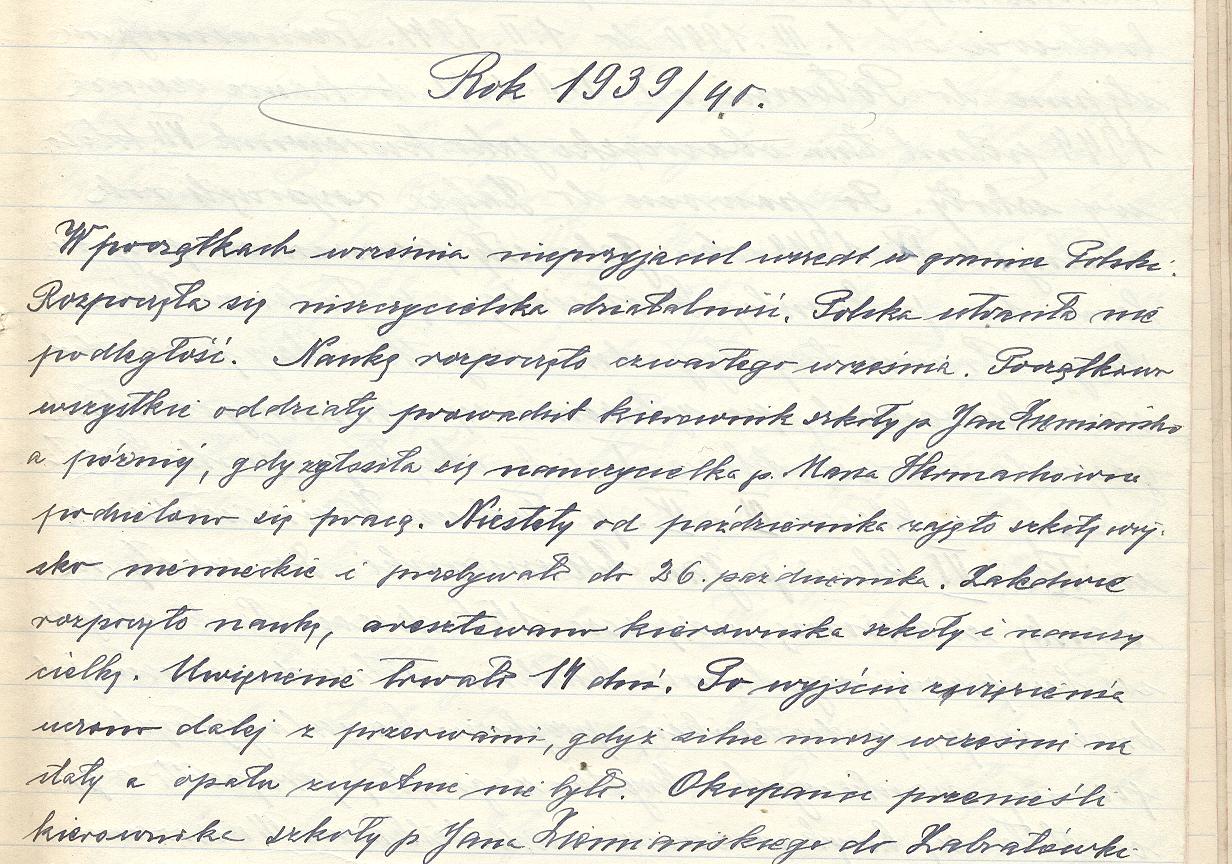 Rok 1939/40.
W początkach września nieprzyjaciel wszedł w granice Polski.
Rozpoczęła się niszczycielska działalność. Polska utraciła nie
podległość. Naukę rozpoczęto czwartego września. Początkowo
wszystkie oddziały prowadził kierownik szkoły p. Jan Ziemiański
a później, gdy zgłosiła się nauczycielka p. Maria Hermachówna
podzielono się pracą. Niestety od października zajęło szkołę woj-
sko niemieckie i przebywało do 26. października. Zaledwie
rozpoczęto naukę, aresztowano kierownika szkoły i nauczy
cielkę. Uwięzienie trwało 14 dni. Po wyjściu z więzienia
uczono dalej z przerwami, gdyż silne mrozy wcześnie na
stały a opału zupełnie nie było. Okupanci przenieśli
kierownika szkoły p. Jana Ziemiańskiego do Zabratówki